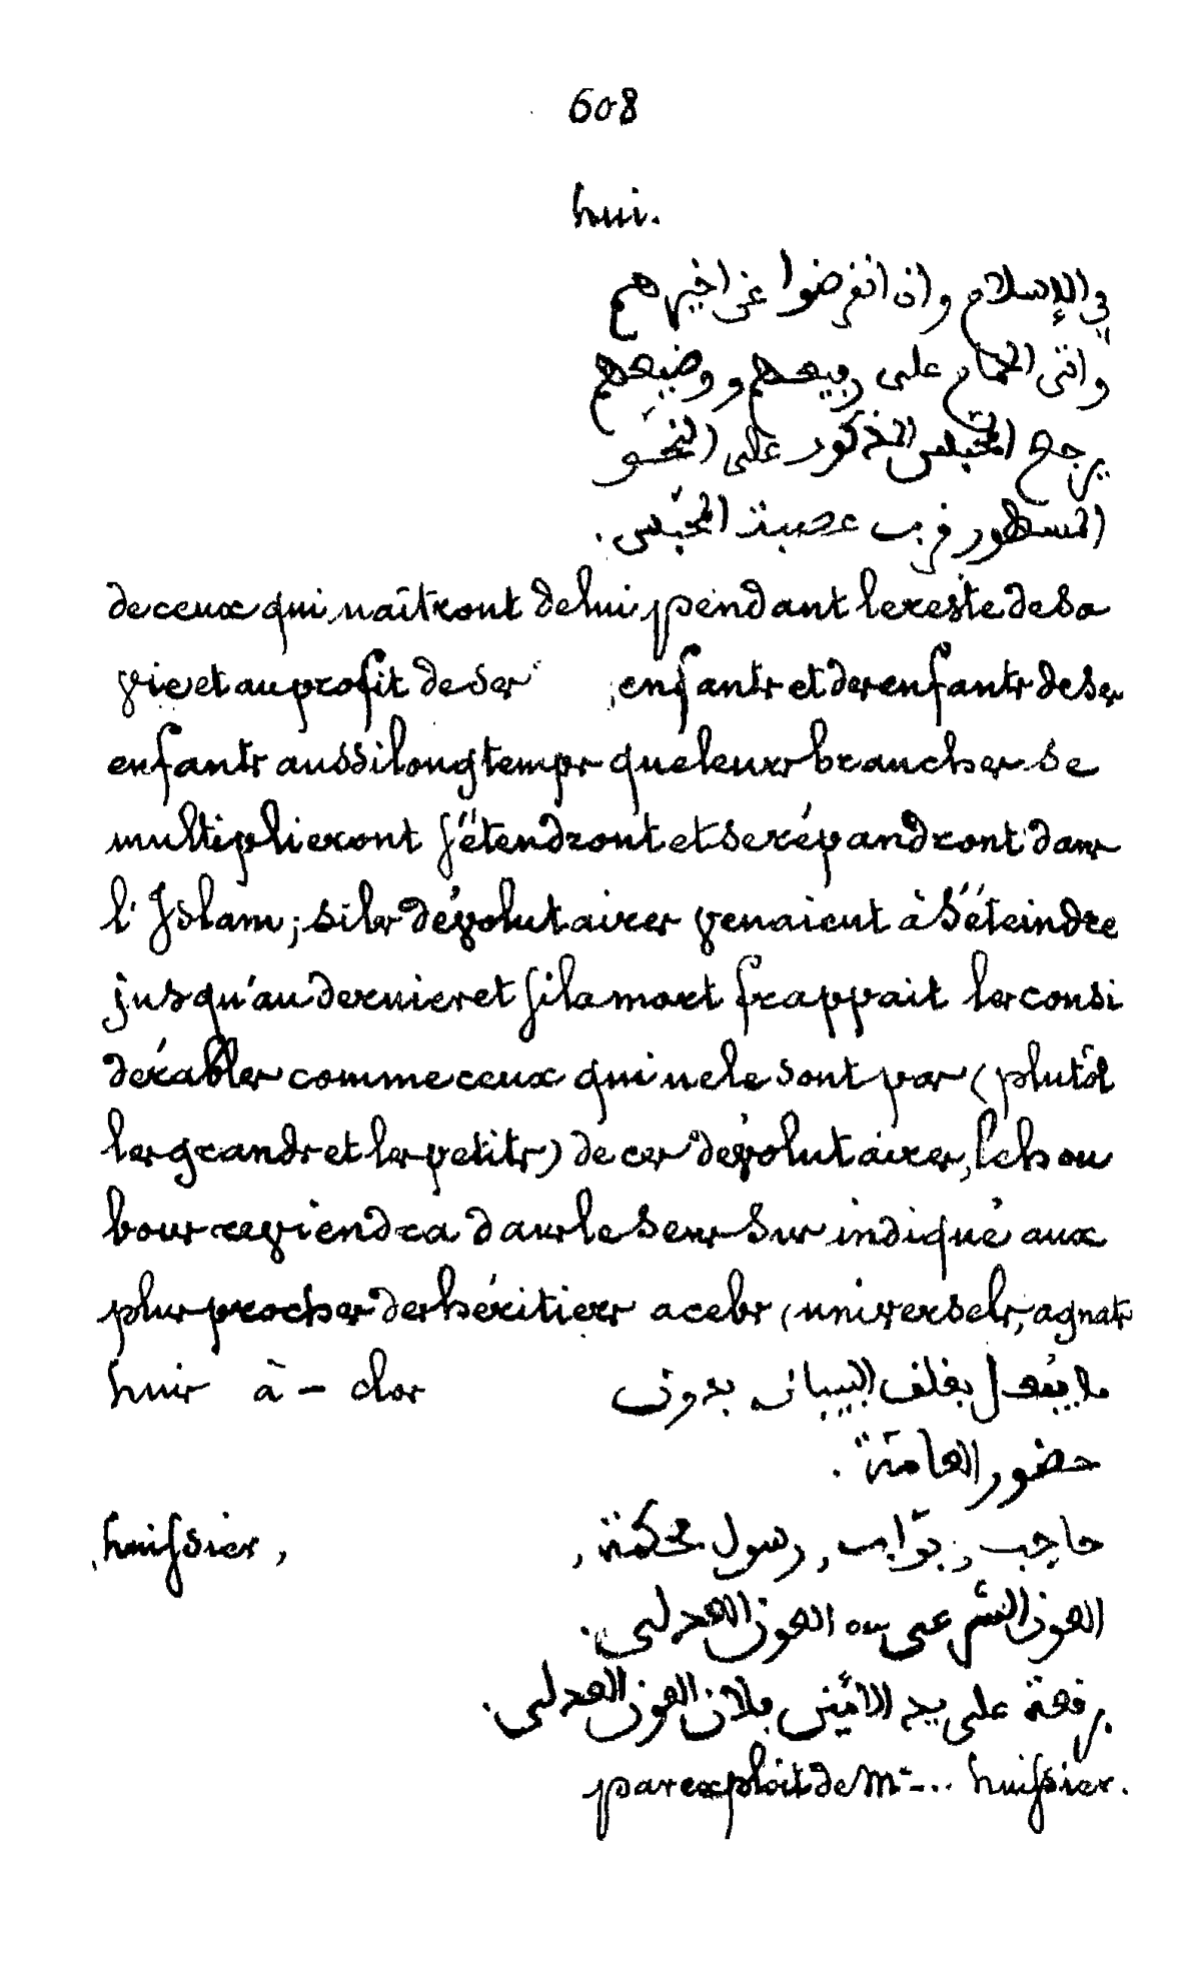 608
hui.
في الإسلام وان انقرضوا عن اخيرهم
واتى الحمام على رفيعهم ووضيعهم
يرجع المحبّس المذكور على النحو
المسطور فرب عصبة المحبّس.
de ceux qui naîtront de lui pendant le reste de sa
vie et au profit de ses enfants et des enfants de ses
enfants aussi longtemps que leurs branches se
multiplieront s'étendront et se répandront dans
l'Islam; si les dévolutaires venaient à s'éteindre
jusqu'au dernier et si la mort frappait les consi
dérables comme ceux qui ne le sont pas (plutôt
les grands et les petits) de ces dévolutaires, le hou
bous reviendra dans le sens sus indiqué aux
plus proches des héritiers acebs (universels, agnats
huis à - clos ما يفعل بغلق البيبان بدون
حضور العامّة.
huissier, حاجب, بوّاب, رسول محكمة,
العون الشرعى العون العدلى.
رفعة على يد الامين فلان العون العدلى.
par exploit de Me... huissier.